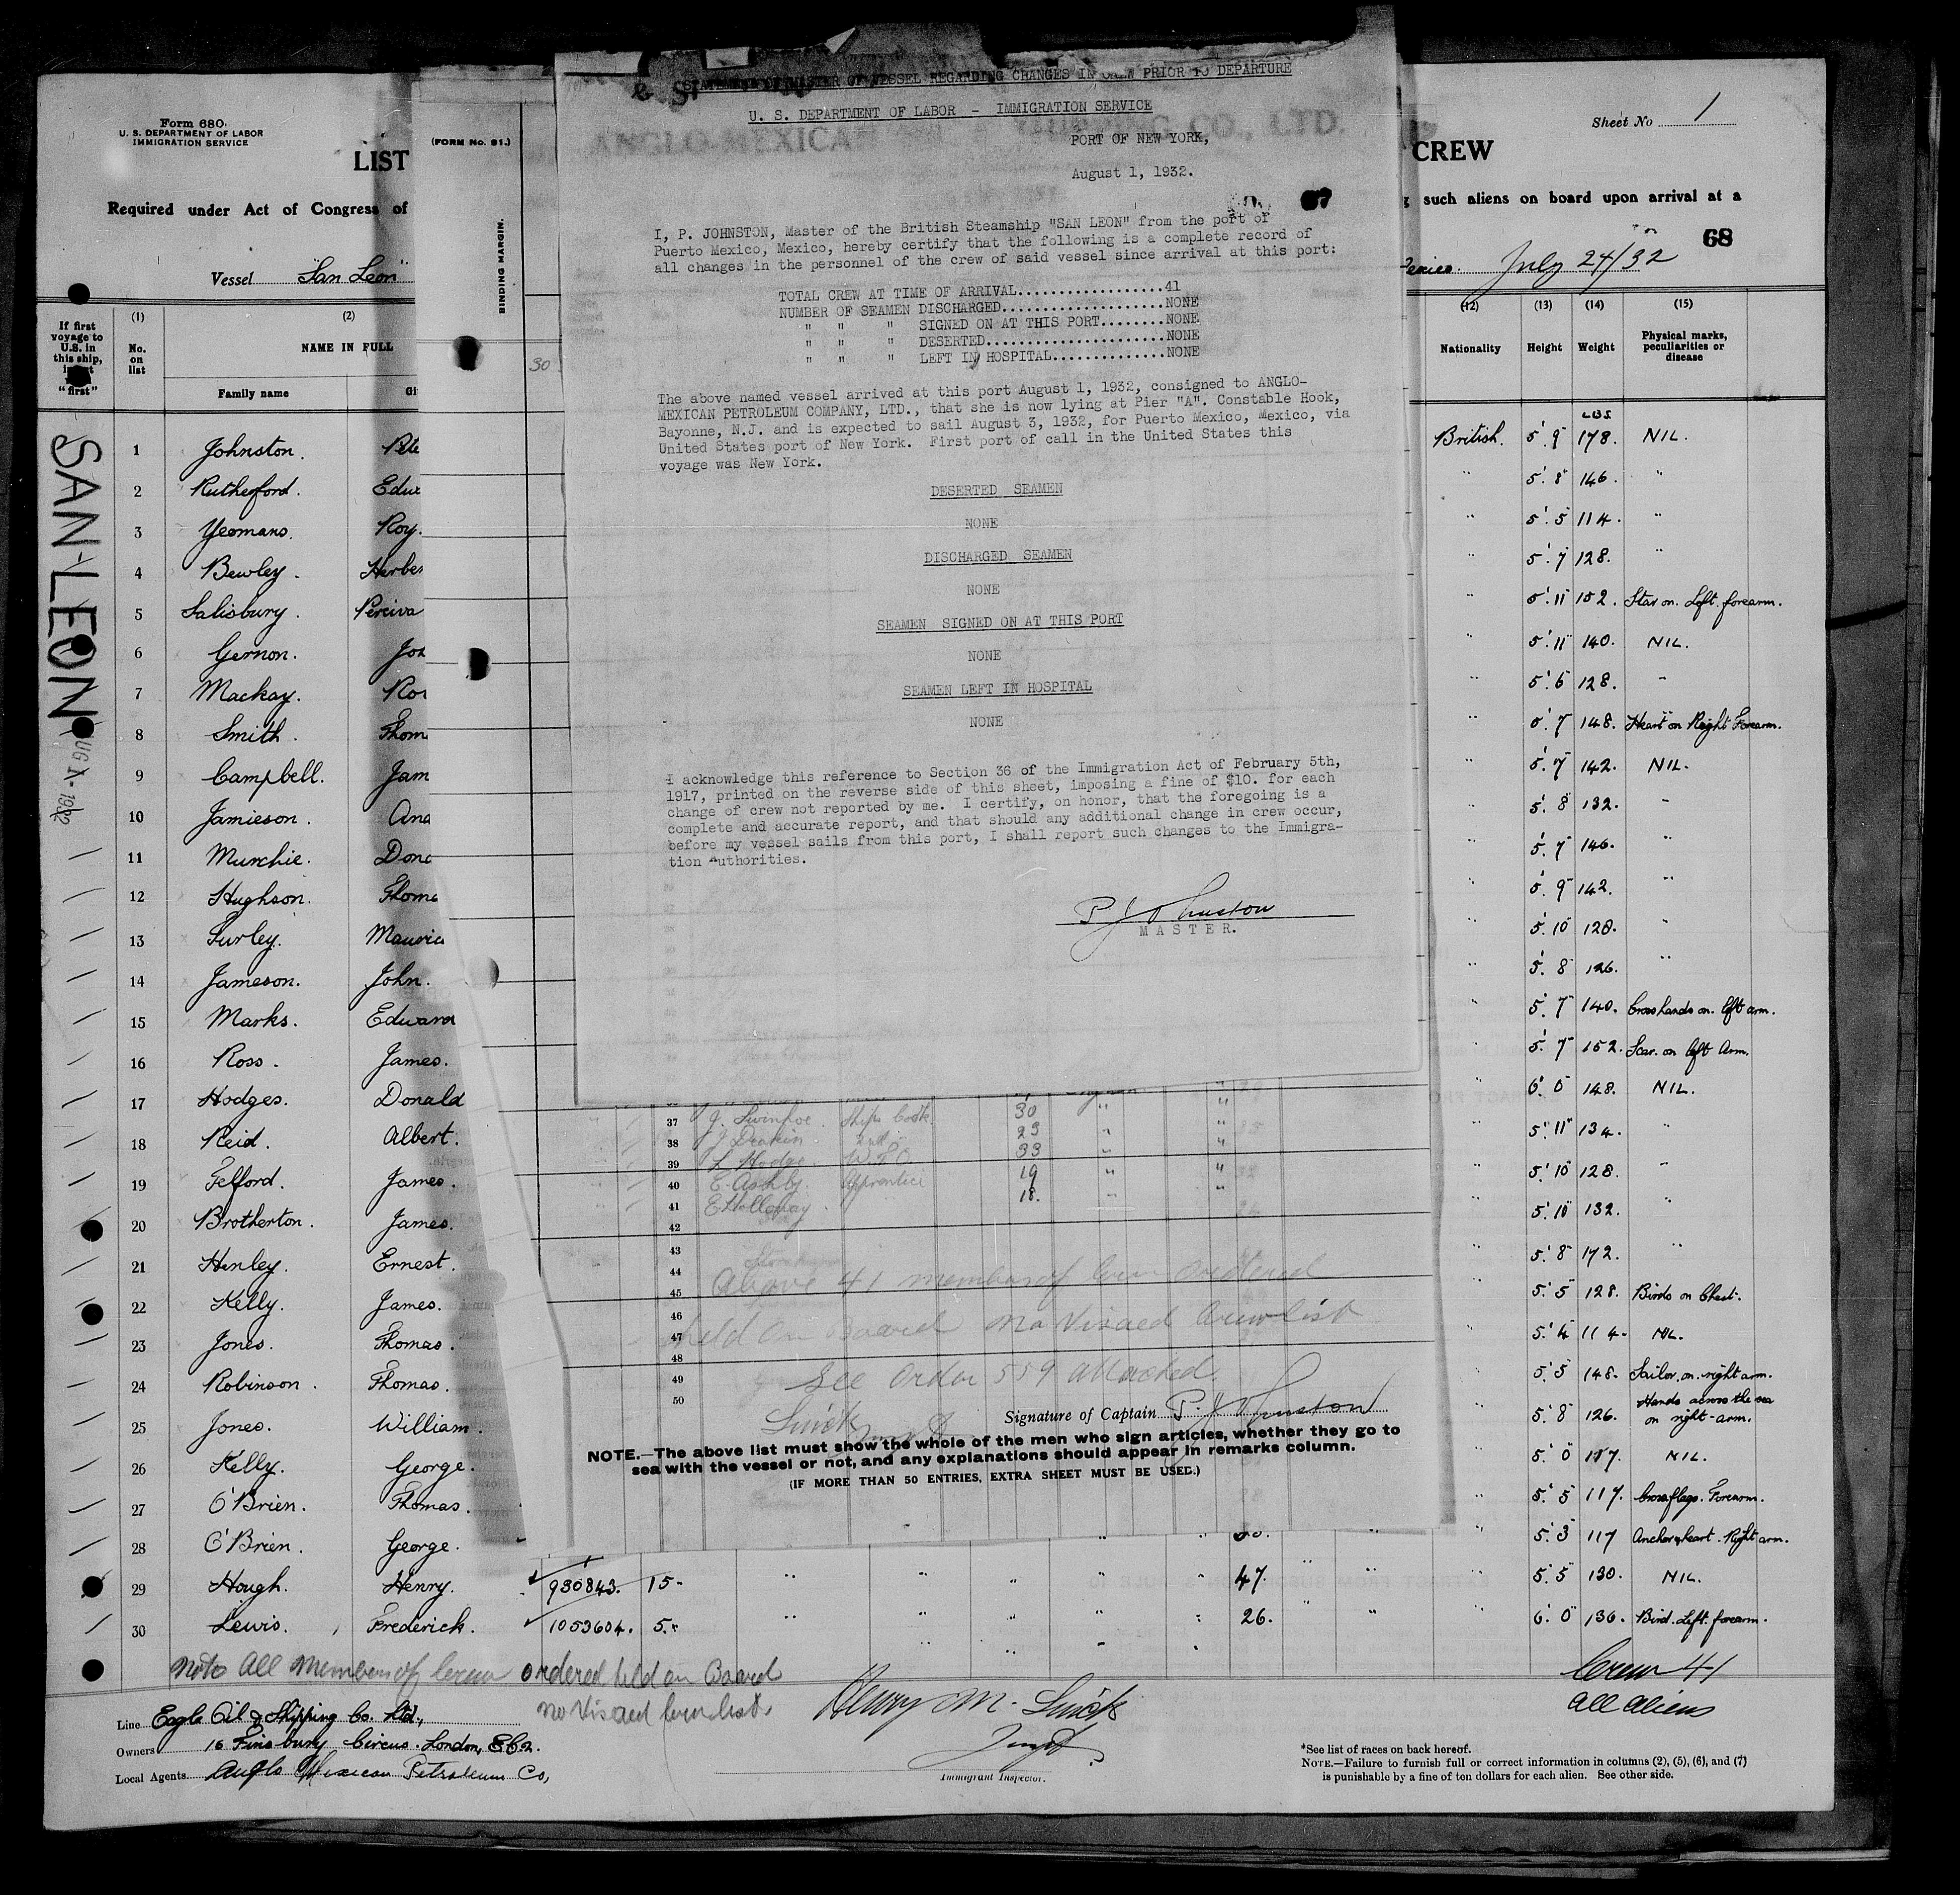 Form 680
U. S. DEPARTMENT OF LABOR
IMMIGRATION SERVICE
LIST
Required under Act of Congress of
Vessel "San Leon"
(FORM No. 91.)
BINDING MARGIN.
30
STATEMENT OF MASTER OF VESSEL REGARDING CHANGES IN CREW PRIOR TO DEPARTURE
U. S. DEPARTMENT OF LABOR - IMMIGRATION SERVICE
ANGLO-MEXICAN CO., LTD.
PORT OF NEW YORK,
August 1, 1932.
67
I, P. JOHNSTON, Master of the British Steamship "SAN LEON" from the port of
Puerto Mexico, Mexico, hereby certify that the following is a complete record of
all changes in the personnel of the crew of said vessel since arrival at this port:
TOTAL CREW AT TIME OF ARRIVAL...................41
NUMBER OF SEAMEN DISCHARGED.....................NONE
" " " SIGNED ON AT THIS PORT........NONE
" " " DESERTED.......................NONE
" " " LEFT IN HOSPITAL...............NONE
The above named vessel arrived at this port August 1, 1932, consigned to ANGLO-
MEXICAN PETROLEUM COMPANY, LTD., that she is now lying at Pier "A". Constable Hook,
Bayonne, N.J. and is expected to sail August 3, 1932, for Puerto Mexico, Mexico, via
United States port of New York. First port of call in the United States this
voyage was New York.
DESERTED SEAMEN
NONE
DISCHARGED SEAMEN
NONE
SEAMEN SIGNED ON AT THIS PORT
NONE
SEAMEN LEFT IN HOSPITAL
NONE
I acknowledge this reference to Section 36 of the Immigration Act of February 5th,
1917, printed on the reverse side of this sheet, imposing a fine of $10. for each
change of crew not reported by me. I certify, on honor, that the foregoing is a
complete and accurate report, and that should any additional change in crew occur,
before my vessel sails from this port, I shall report such changes to the Immigra-
tion Authorities.
P Johnston
MASTER.
Sheet No 1
CREW
such aliens on board upon arrival at a
68
July 24/32
If first voyage to U.S. in this ship, "first"
(1) No. on list
(2) NAME IN FULL
Family name
(12) Nationality
(13) Height
(14) Weight
(15) Physical marks, peculiarities or disease
LBS
SAN-LEON
1 Johnston. British. 5' 9" 178. NIL.
2 Rutherford. " 5' 8" 146. "
3 Yeomans. Roy. " 5' 5" 114. "
4 Bewley. " 5' 7" 128. "
5 Salisbury. " 5' 11" 152. Star on Left forearm.
6 Gernon. " 5' 11" 140. NIL.
7 Mackay. " 5' 6" 128. "
8 Smith. " 5' 7" 148. Heart on Right Forearm.
9 Campbell. " 5' 7" 142. NIL.
10 Jamieson. " 5' 8" 132. "
11 Murchie. " 5' 7" 146. "
12 Hughson. " 5' 9" 142. "
13 Turley. " 5' 10" 128. "
14 Jameson. John. " 5' 8" 126. "
15 Marks. Edward " 5' 7" 140. Cross hands on left arm.
16 Ross. James. " 5' 7" 152. Scar on left Arm.
17 Hodges. Donald " 6' 0" 148. NIL.
18 Reid. Albert. " 5' 11" 134. "
19 Telford. James. " 5' 10" 128. "
20 Brotherton. James. " 5' 10" 132. "
21 Henley. Ernest. " 5' 8" 172. "
22 Kelly. James. " 5' 5" 128. Birds on Chest.
23 Jones. Thomas. " 5' 4" 114. NIL.
24 Robinson. Thomas. " 5' 5" 148. Sailor on right arm.
25 Jones. William. " 5' 8" 126. Hands across the sea on right arm.
26 Kelly. George. " 5' 0" 117. NIL.
27 O'Brien. Thomas. " 5' 5" 117. Crossflags. Forearm.
28 O'Brien. George. " 5' 3" 117 Anchor & heart. Right arm.
29 Hough. Henry. 930843. 15- " " " " " 47. " " " 5' 5" 130. NIL.
30 Lewis. Frederick. 1053604. 5. " " " " " 26. " " " 6' 0" 136. Bird. Left. forearm.
37 J. Swinhoe. Ships Cook 30 " "
38 J Deakin 2nd " 23 " "
39 L Hodge W.T.O. 33 " "
40 E. Ashby Apprentice 19 " "
41 E Holloway " 18. " "
42
43
44
45
46
47
48
49
50
Above 41 members of Crew ordered
held on Board no Visaed Crew list
See Order 559 attached.
Signature of Captain P. Johnston
NOTE.—The above list must show the whole of the men who sign articles, whether they go to
sea with the vessel or not, and any explanations should appear in remarks column.
(IF MORE THAN 50 ENTRIES, EXTRA SHEET MUST BE USED.)
Note All members of Crew ordered held on Board
no Visaed Crew list.
Crew 41
All aliens
Line Eagle Oil & Shipping Co. Ltd.,
Owners 16 Finsbury Circus. London, E.C.2.
Local Agents Anglo Mexican Petroleum Co,
Henry M. Smick
Immigrant Inspector.
*See list of races on back hereof.
NOTE.—Failure to furnish full or correct information in columns (2), (5), (6), and (7)
is punishable by a fine of ten dollars for each alien. See other side.